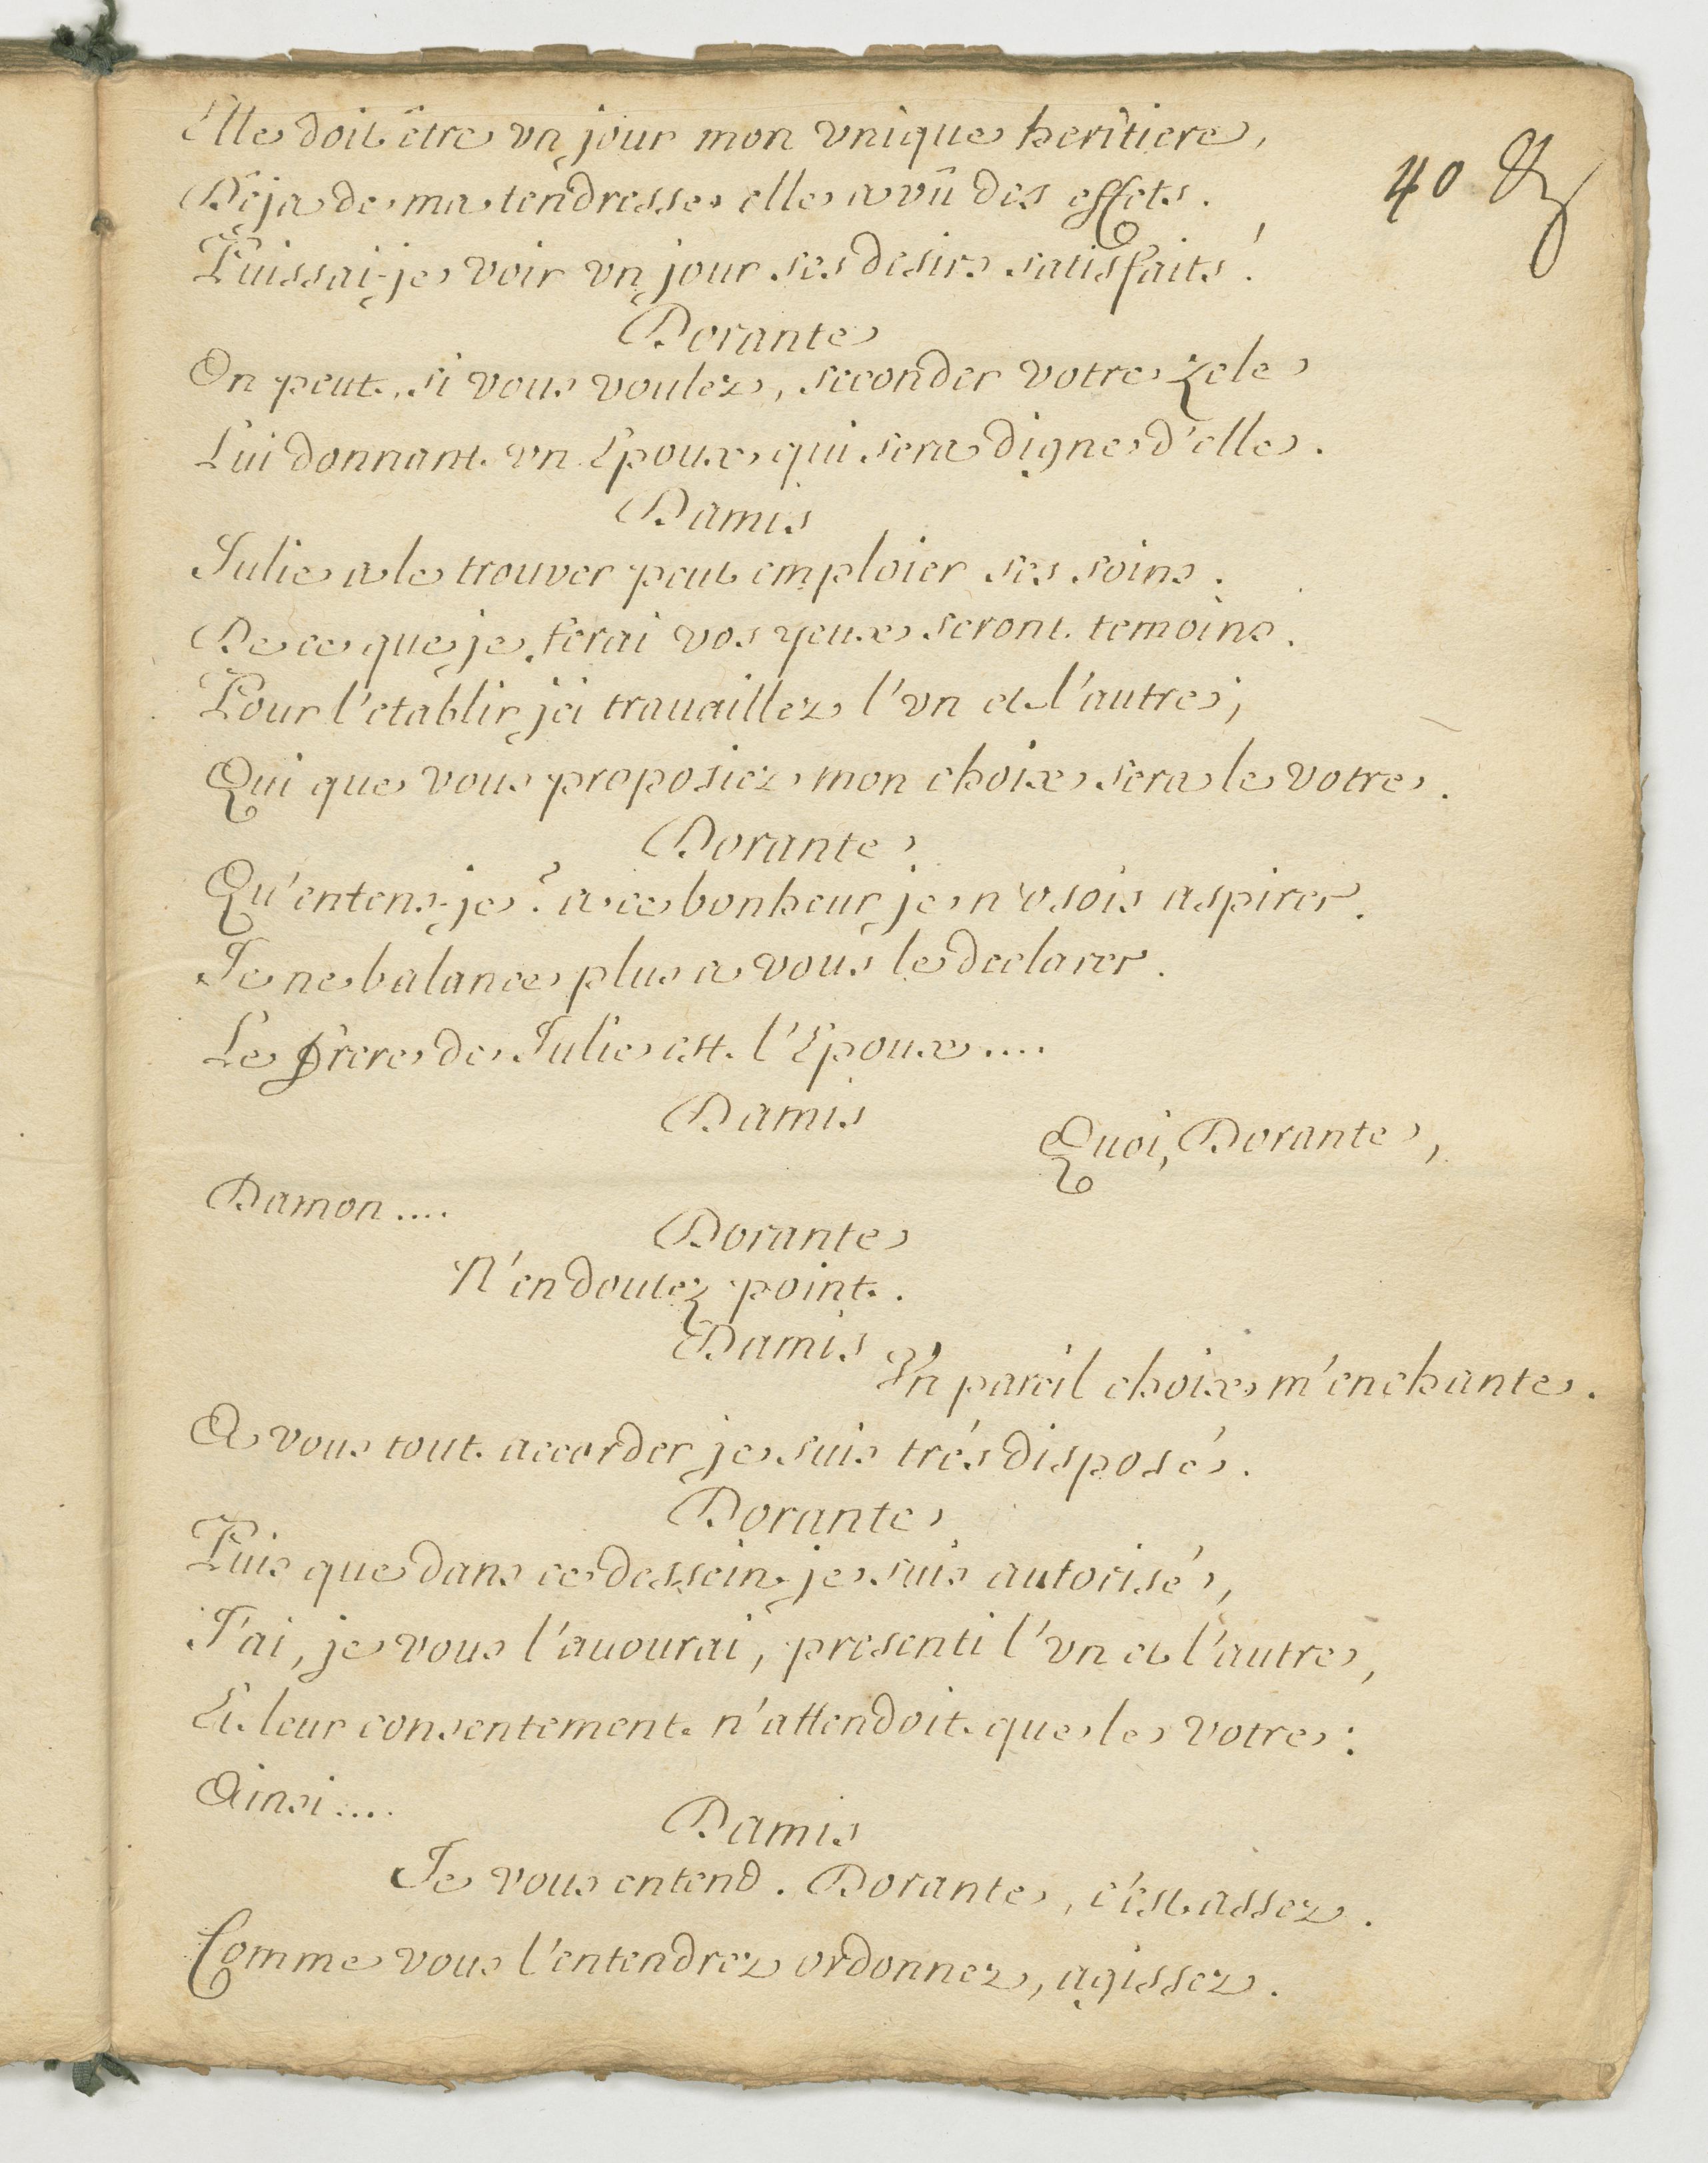 Elle doit être vn jour mon vnique heritiere,
40
Déja de ma tendresse elle a vû des effets.
Puissai-je voir vn jour ses desirs satisfaits!
Dorante
On peut, si vous voulez, seconder votre zele
Lui donnant vn Epoux qui sera digne d'elle.
Damis
Julie a le trouver peut emploier ses soins.
De ce que je ferai vos yeux seront temoins.
Pour l'etablir ici trauaillez l'vn et l'autre;
Qui que vous proposiez mon choix sera le votre.
Dorante
Qu'entens-je? a ce bonheur je n'osois aspirer.
Je ne balance plus a vous le declarer.
Le frere de Julie est l'Epoux....
Damis
Quoi, Dorante,
Damon....
Dorante
N'en doutez point.
Damis
Vn pareil choix m'enchante.
A vous tout accorder je suis trés disposé.
Dorante
Puis que dans ce dessein je suis autorisé,
J'ai, je vous l'auourai, presenti l'vn et l'autre,
Et leur consentement n'attendoit que le votre:
Ainsi....
Damis
Je vous entend. Dorante, c'est assez.
Comme vous l'entendrez ordonnez, agissez.